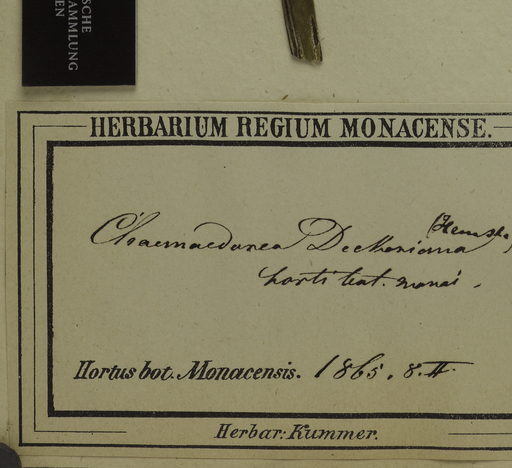 SCHE
SAMMLUNG
EN
HERBARIUM REGIUM MONACENSE.
Chaemaedorea Deckeriana
horti bot. monac.
Hortus bot. Monacensis. 1865. 8. II.
Herbar: Kummer.